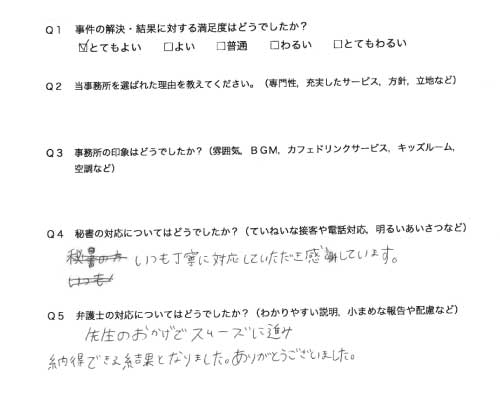 Q1 事件の解決・結果に対する満足度はどうでしたか？
☑とてもよい □よい □普通 □わるい □とてもわるい
Q2 当事務所を選ばれた理由を教えてください。（専門性，充実したサービス，方針，立地など）
Q3 事務所の印象はどうでしたか？（雰囲気，BGM，カフェドリンクサービス，キッズルーム，
空調など）
Q4 秘書の対応についてはどうでしたか？（ていねいな接客や電話対応，明るいあいさつなど）
秘書の方 いつも丁寧に対応していただき感謝しています。
いつも
Q5 弁護士の対応についてはどうでしたか？（わかりやすい説明，小まめな報告や配慮など）
先生のおかげでスムーズに進み
納得できる結果となりました。ありがとうございました。